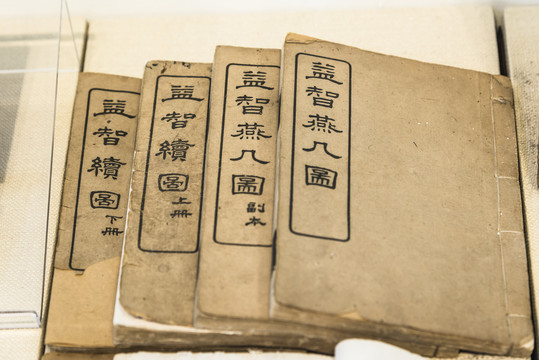 益智燕几圖
益智燕几圖
副本
益智續圖
上册
益智續圖
下册